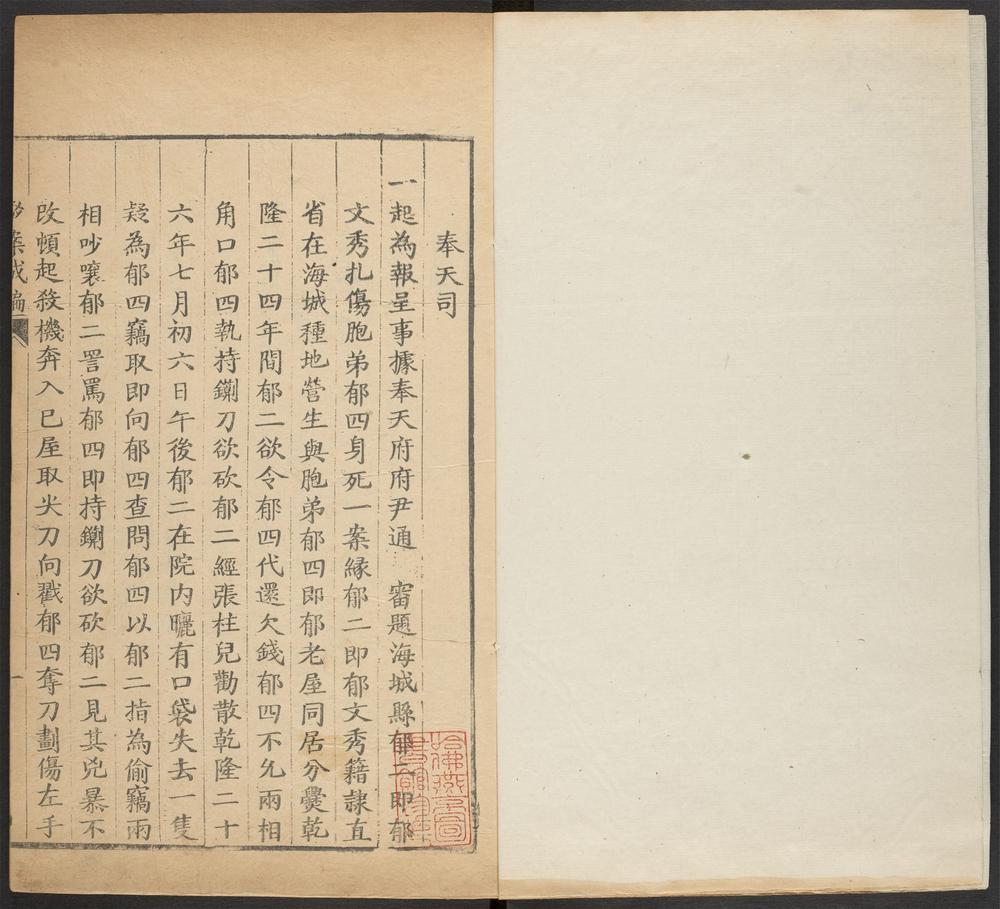 奉天司
一起為報呈事據奉天府府尹通　審題海城縣郁二即郁
文秀扎傷胞弟郁四身死一案緣郁二即郁文秀籍隷直
省在海城種地營生與胞弟郁四即郁老屋同居分爨乾
隆二十四年間郁二欲令郁四代還欠錢郁四不允兩相
角口郁四執持鍘刀欲砍郁二經張柱兒勸散乾隆二十
六年七月初六日午後郁二在院内曬有口袋失去一隻
疑為郁四竊取即向郁四查問郁四以郁二指為偷竊兩
相吵嚷郁二詈罵郁四即持鍘刀欲砍郁二見其兇暴不
改頓起殺機奔入巳屋取尖刀向戳郁四奪刀劃傷左手
案成編
一
哈佛燕京圖書館珍藏